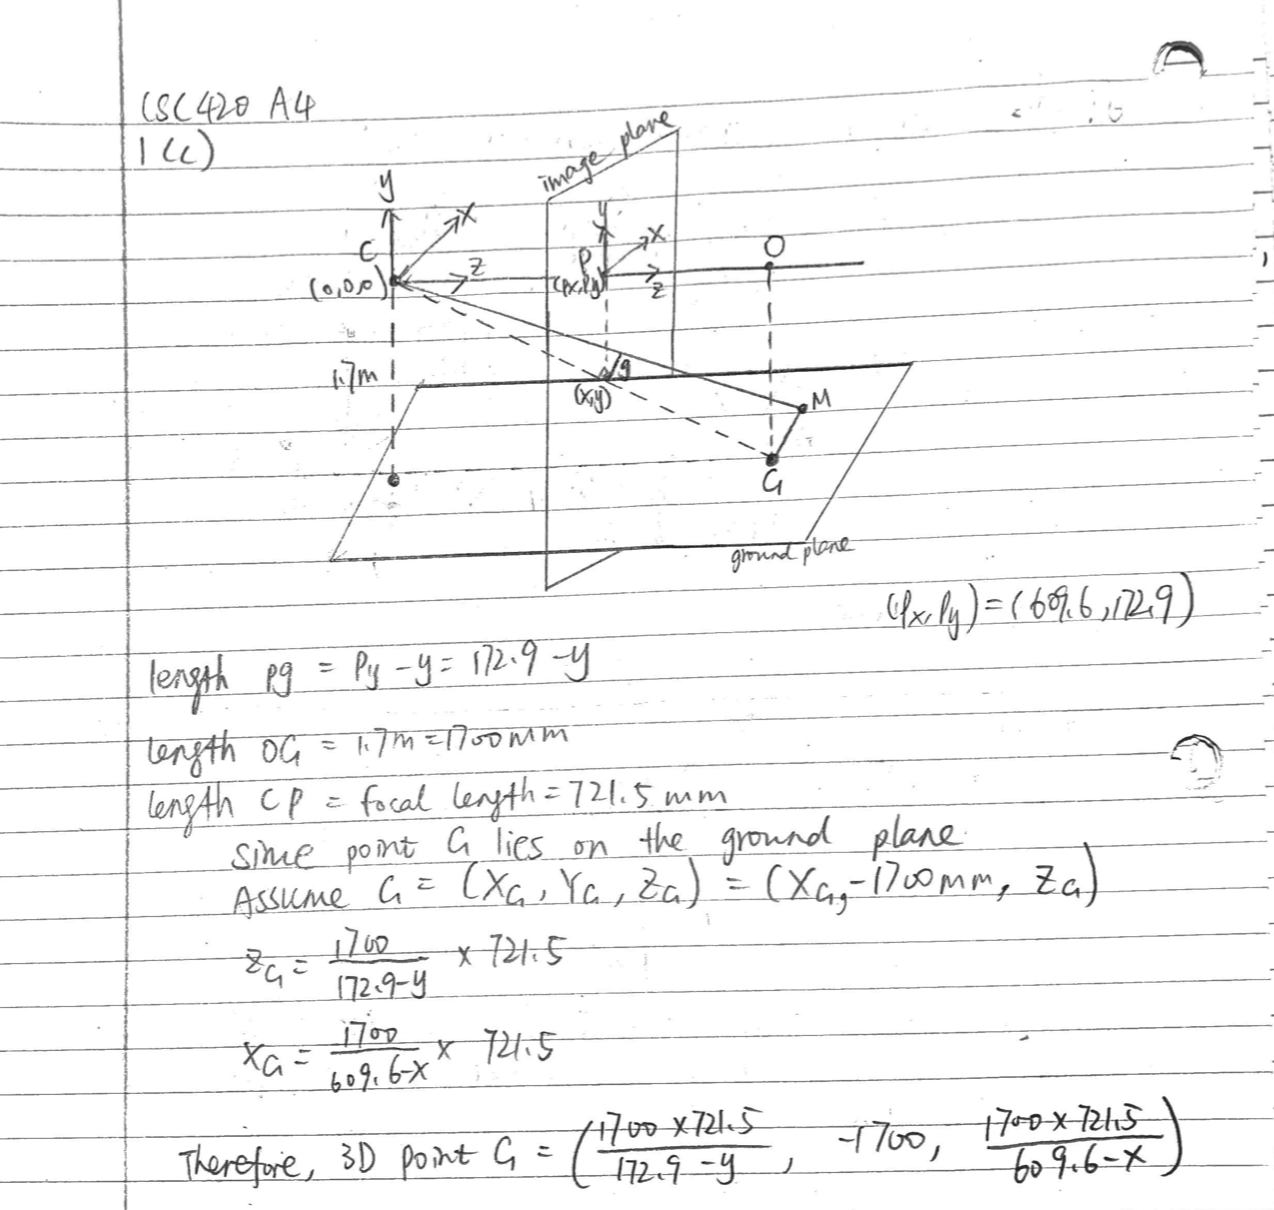 CSC420 A4
1(c)
image plane
y
X
C
Z
(0,0,0)
y
X
P
(Px,Py)
Z
O
1.7m
g
(x,y)
M
G
ground plane
(Px,Py)=(609.6,172.9)
length pg = Py-y=172.9-y
length OG = 1.7m=1700mm
length CP = focal length=721.5mm
Since point G lies on the ground plane.
Assume G = (XG, YG, ZG) = (XG,-1700mm, ZG)
ZG = 1700/(172.9-y) × 721.5
XG = 1700/(609.6-x) × 721.5
Therefore, 3D point G = (1700×721.5/(172.9-y), -1700, 1700×721.5/(609.6-x))